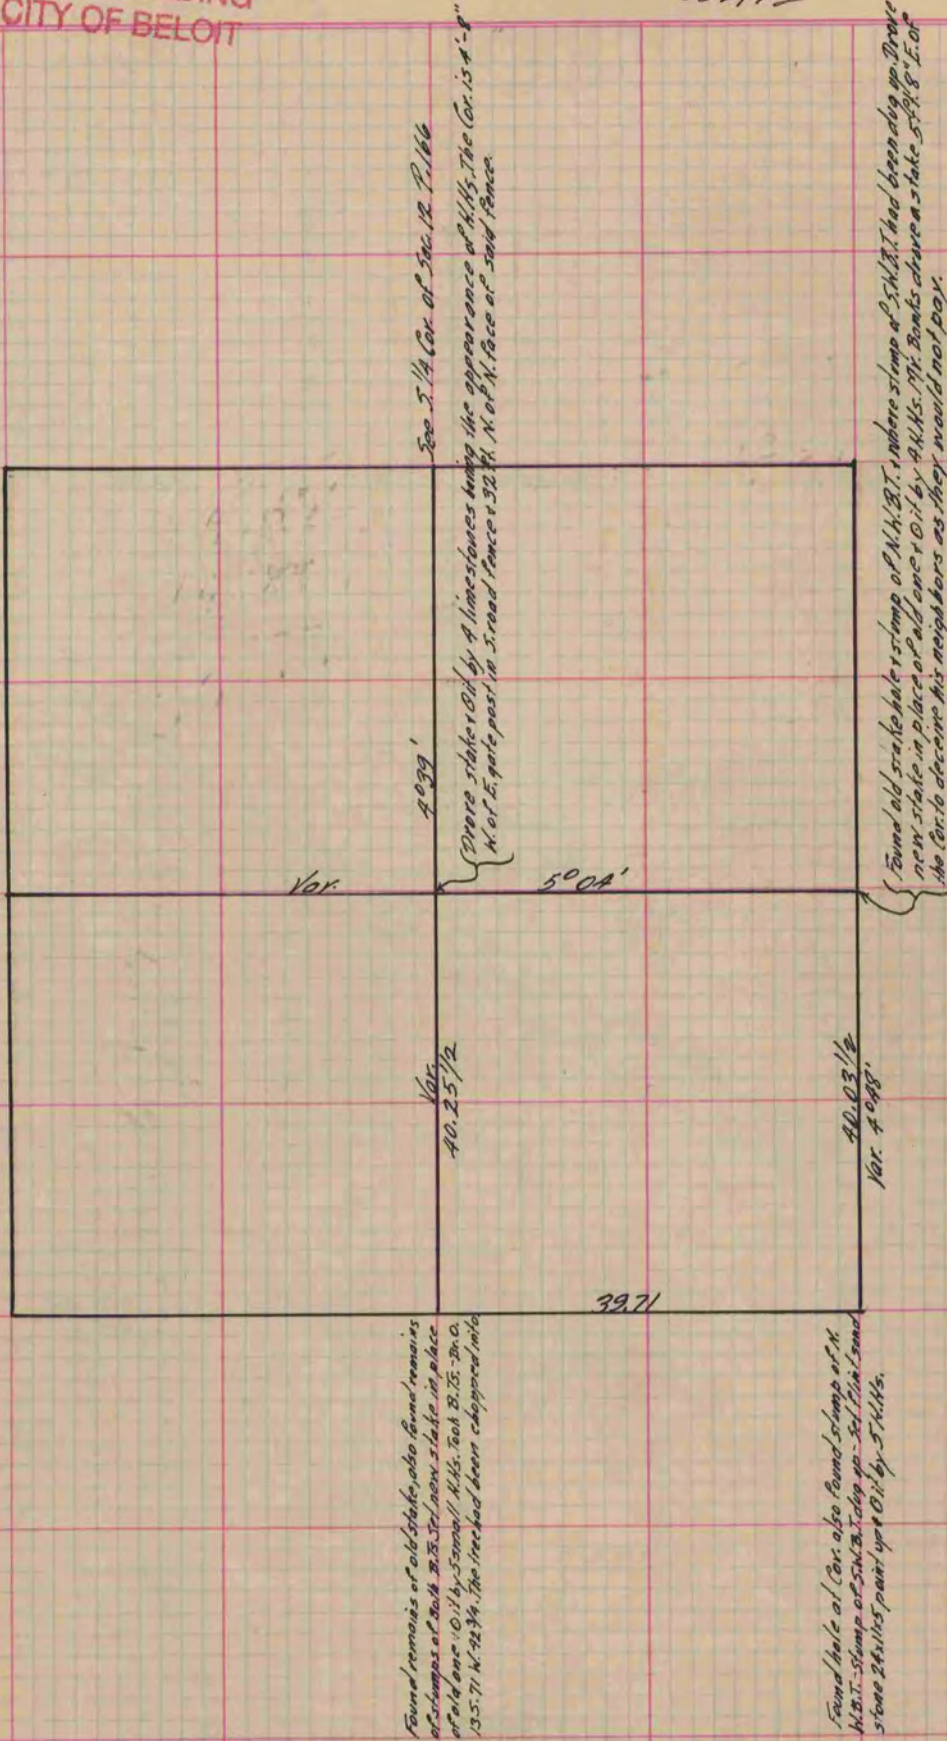 CITY OF BELOIT
See S 1/4 Cor. of Sec. 12 P. 166
Drove stake & Ⓞ it by 4 limestones being the appearance of N.Hs. The Cor. is 4'-8"
W. of E. gate post in S. road fence & 32 N. of N. face of said fence.
4°39'
Var.
5°04'
Var.
40.25 1/2
40.03 1/2
Var. 4°48'
39.71
Found old stake hole & stump of N.W.B.T. & where stump of S.W.B.T. had been dug up. Drove
new stake in place of old one & Ⓞ it by 4 N.Hs. Mr. Banks drove a stake 5 ft. 8" E. of
the Cor. to deceive his neighbors as they would not pay.
Found remains of old stake, also found remains
of stumps of Both B.Ts. Set new stake in place
of old one Ⓞ it by 5 small N.Hs. Took B.Ts.-Br.O.
13 S.71 W. 42 3/4. The tree had been chopped into
Found hole at Cor. also found stump of N.
W.B.T.-Stump of S.W.B.T. dug up- Set Flint sand
stone 24x11x5 point up & Ⓞ it by 5 N.Hs.